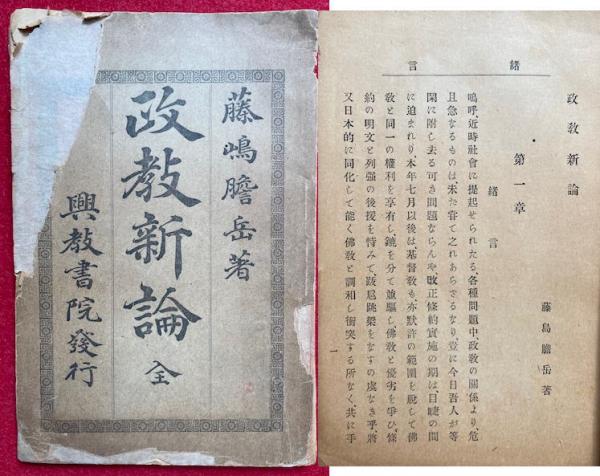 藤嶋膽岳著
政教新論 全
興教書院發行
緒言
政敎新論
藤島膽岳著
第一章
緒言
嗚呼近時社會に提起せられたる、各種問題中政敎の關係より、危
且急なるものは、未た甞て之れあらざるなり、豈に今日吾人が等
閑に附し去る可き問題ならんや、改正條約實施の期は、目睫の間
に迫まれり、本年七月以後は、基督敎も亦默許の範圍を脫して佛
敎と同一の權利を享有し、鑣を分て並驅し、佛敎と優劣を爭ひ、條
約の明文と列强の後援を恃みて、跋扈跳梁をなすの虞なき乎、將
又日本的に同化して能く佛敎と調和し衝突する所なく、共に手
一